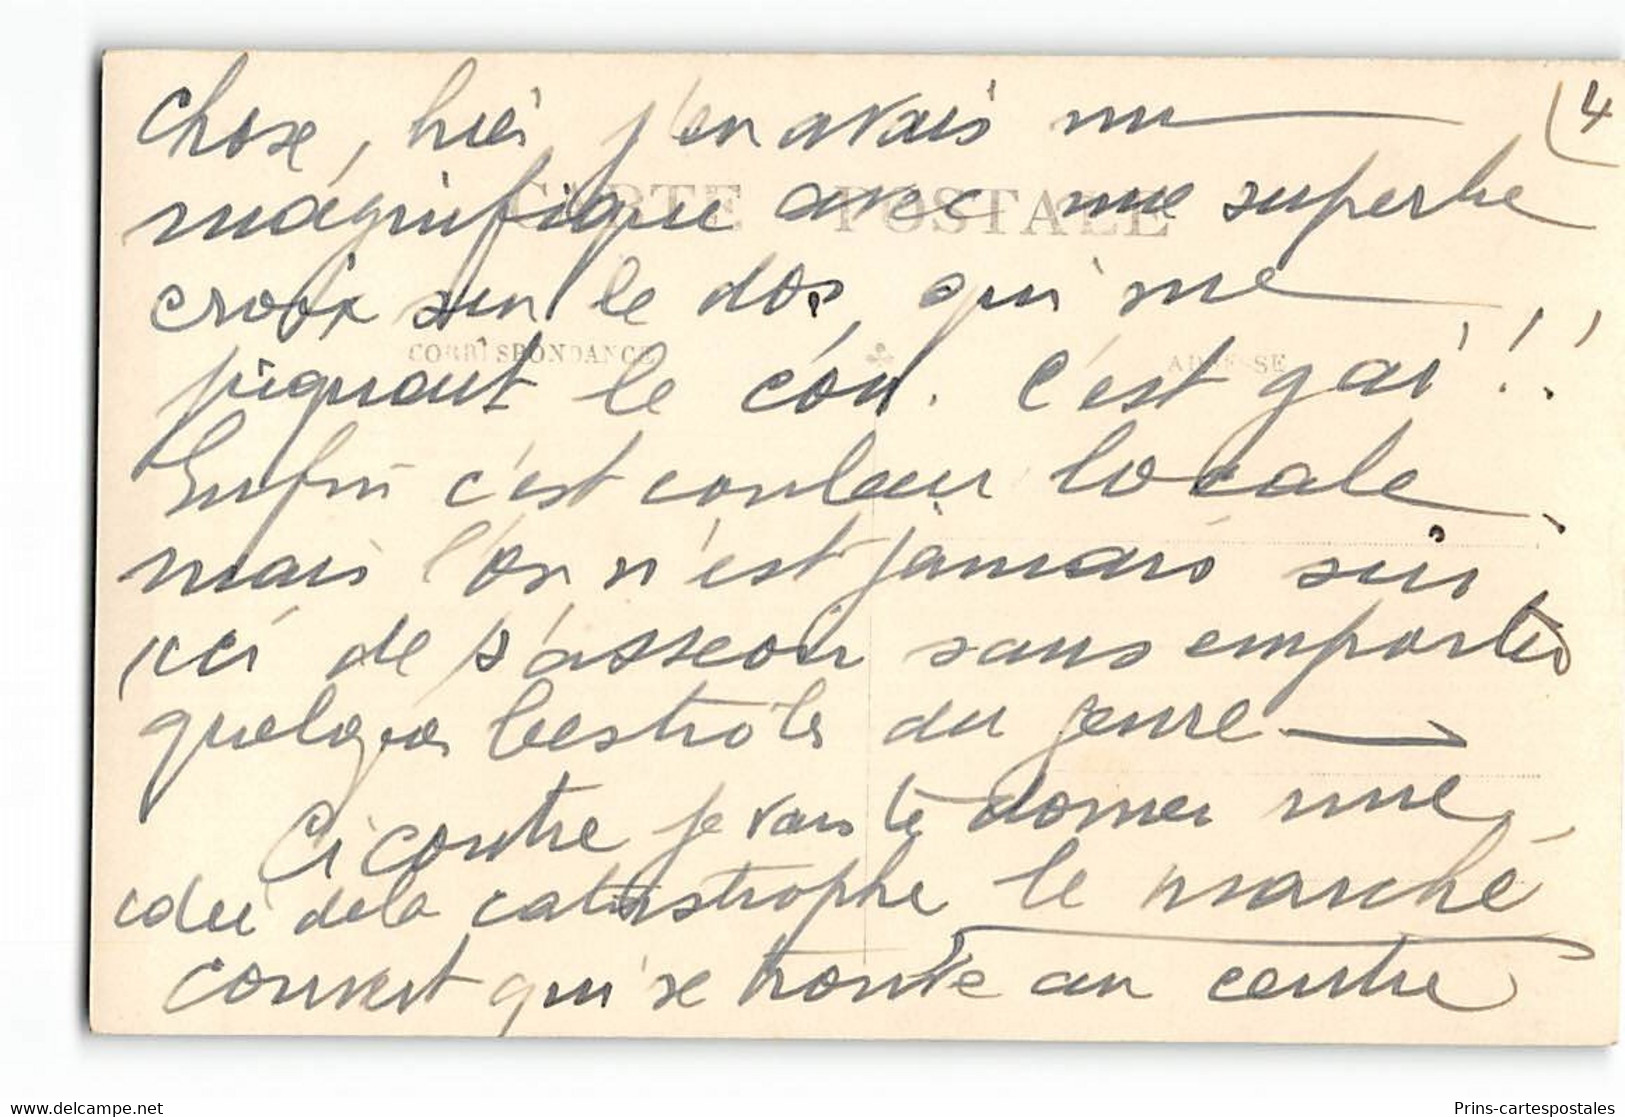 4
chose, hier j'en avais un
magnifique avec une superbe
CARTE POSTALE
croix sur le dos, qui me
CORRESPONDANCE ADRESSE
piquait le cou. c'est gai!!
Enfin c'est couleur locale,
mais l'on n'est jamais sûr
ici de s'asseoir sans emporter
quelques bestioles du genre
Ci contre je vais te donner une
idée de la catastrophe le marché
couvert qui se trouve au centre
delcampe.net
Prins-cartespostales